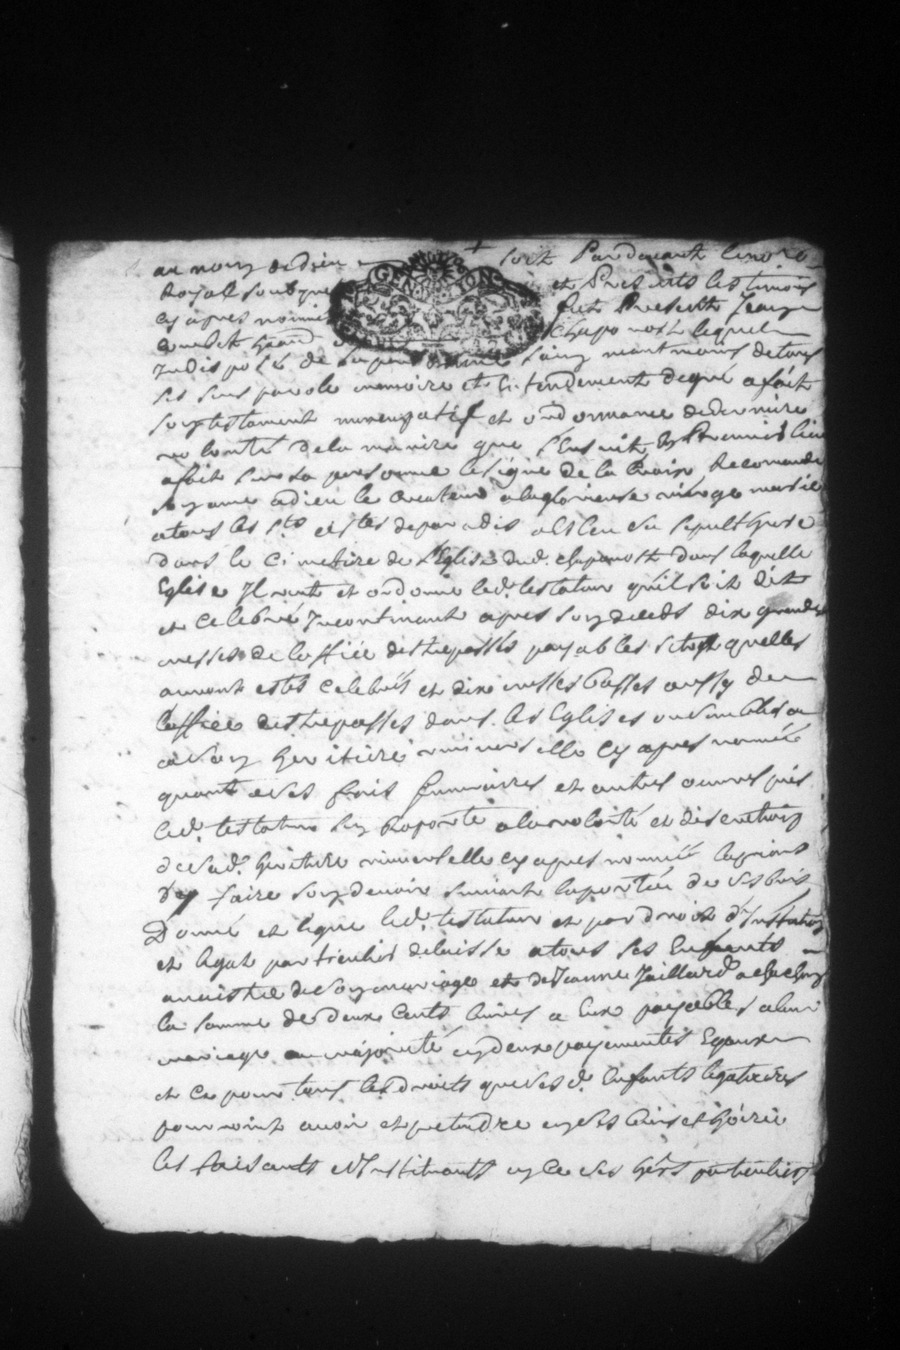 au nom de dieu soit Pardevant le nore
Royal soubsigne et Presents les temoins
cy apres nommes fut Present Jean
Combet Grand chaponost lequel
Indisposé de sa personne sain neantmoins de tous
ses sens parole memoire et entendement de gré a fait
son testament nuncupatif et ordonnance de derniere
volonté de la maniere que s'Ensuit Premierement
a fait sur sa personne le signe de la Croix Recomandé
son ame a dieu le createur a la glorieuse vierge marie
a tous les sts et stes de paradis a Esleu sa sepulthure
dans le Cimetiere de l'Eglise dud. chaponost dans laquelle
Eglise Il veut et ordonne led. testateur qu'il soit dit
et Celebré Incontinant apres son deceds dix grandes
messes de l'office des trepassés payables sitost quelles
auront estés celebrés et dix messes basses aussy de
l'office des trepassés dans les Eglises
a son heritiere universelle cy apres nommée
quant a ses frais funeraires et autres oeuvres pies
led. testateur s'en Raporte a la volonté et discretion
de sad. heritiere universelle cy apres nommée la priant
d'en faire son devoir suivant la portée de ses biens
Donne et legue led. testateur et par droit d'Institution
et legat particulier delaisse a tous ses Enfants
a naistre de son mariage et de Jeanne Jaillard a chachun
la somme de deux Cents livres a Eux payables a leur
mariage ou majorité en deux payements Egaux
et ce pour tous les droits que ses d. Enfants legataires
pourroint avoir et pretendre en ses biens et hoirie
les faisants et Instituants en ce ses hers particuliers